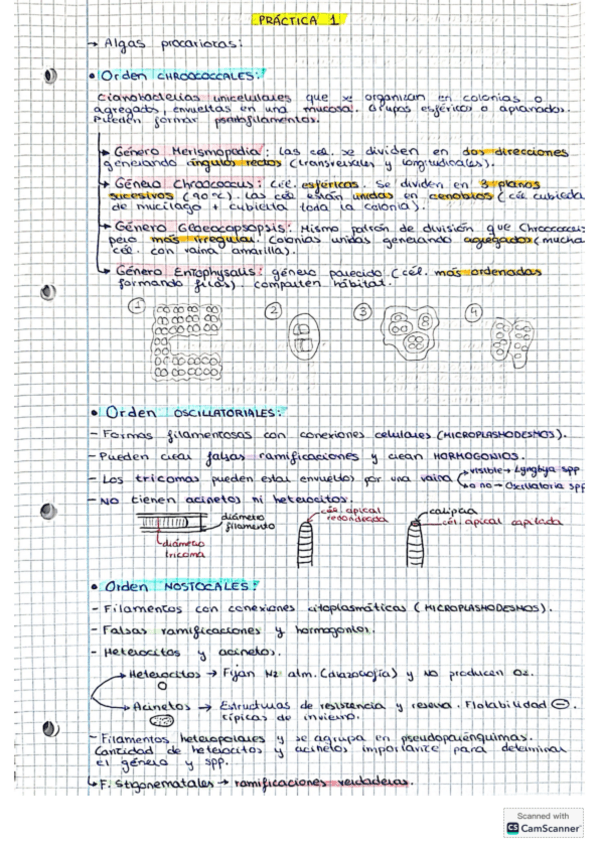 PRÁCTICA 1
→ Algas procariotas:
• Orden CHROOCOCCALES:
Cianobacterias unicelulares que se organizan en colonias o
agregados, envueltas en una mucosa. Grupos esféricos o aplanados.
Pueden formar pseudofilamentos.
→ Género Merismopedia: las cél. se dividen en dos direcciones
generando ángulos rectos (transversales y longitudinales).
→ Género Chroococcus: cél. esféricas. Se dividen en 3 planos
sucesivos (90ºc). Las cél están unidas en cenobios (cél cubierta
de mucílago + cubierta toda la colonia).
→ Género Gloeocapsopsis: Mismo patrón de división que Chroococcus;
pero más irregular. Colonias unidas generando agregados (mucha
cél. con vaina amarilla).
→ Género Entophysalis: género parecido (cél. más ordenadas
formando filas). Comparten hábitat.
1 2 3 4
• Orden OSCILLATORIALES:
- Formas filamentosas con conexiones celulares (MICROPLASMODESMOS).
- Pueden crear falsas ramificaciones y crean HORMOGONIOS.
- Los tricomas pueden estar envueltos por una vaina
visible → Lyngbya spp
o no → Oscillatoria spp
- NO tienen acinetos ni heterocitos.
diámetro
filamento
diámetro
tricoma
cél. apical
redondeada
caliptra
cél. apical capitada
• Orden NOSTOCALES:
- Filamentos con conexiones citoplasmáticas (MICROPLASMODESMOS).
- Falsas ramificaciones y hormogonios.
- Heterocitos y acinetos.
→ Heterocitos → Fijan N2 atm. (diazotrofía) y NO producen O2.
→ Acinetos → Estructuras de resistencia y reserva. Flotabilidad ⊖.
típicas de invierno.
- Filamentos heteropolares y se agrupa en pseudoparénquimas.
Cantidad de heterocitos y acinetos importante para determinar
el género y spp.
↳ F. Stigonematales → ramificaciones verdaderas.
Scanned with
CS CamScanner